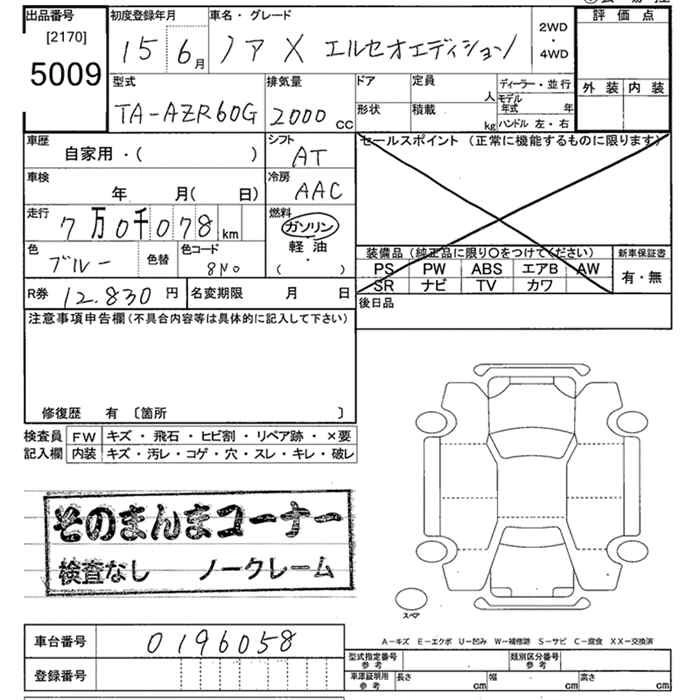 出品番号 初度登録年月 車名・グレード 評価点
[2170] 2WD
5009 15 6月 ノア X エルセオエディション ・
4WD
型式 排気量 ドア 定員 ディーラー・並行 外装 内装
TA-AZR60G 2000cc 人 モデル年式 年
形状 積載 kg ハンドル 左・右
車歴 シフト セールスポイント (正常に機能するものに限ります)
自家用・( ) AT
車検 冷房
年 月( 日) AAC
走行 燃料
7万0千078km ガソリン
色 色替 色コード 軽油 装備品 (純正品に限り〇をつけてください) 新車保証書
ブルー 8N0 ( ・ ) PS PW ABS エアB AW 有・無
SR ナビ TV カワ
R券 12.830円 名変期限 月 日 後日品
注意事項申告欄(不具合内容等は具体的に記入して下さい)
修復歴 有 〔箇所 〕
検査員 FW キズ・飛石・ヒビ割・リペア跡・×要
記入欄 内装 キズ・汚レ・コゲ・穴・スレ・キレ・破レ
そのまんまコーナー
検査なし ノークレーム
スペア
A-キズ E-エクボ U-凹み W-補修跡 S-サビ C-腐食 XX-交換済
車台番号 0196058
型式指定番号 参考 類別区分番号 参考
登録番号 車庫証明用 参考 長さ cm 幅 cm 高さ cm